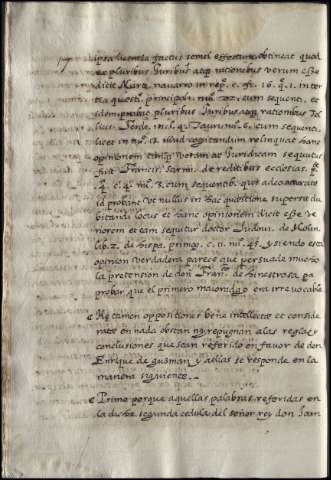 ipsa licentia factus semel effectum obtineat quod
ex pluribus Juribus atq rationibus verum esse
dicit Mart. navarro in rep. c. fi. 16. q. 1. in ter
tia questi. principali. nu. 202. cum sequenti. et
idem probat pluribus Juribus atq rationibus Te
llius Ferde. in l. 41. Tauri nu. 6. cum sequenti.
licet in nu. 12. illud cogitandum relinquat hanc
opinionem etiam veram ac Juridicam sequutus
fuit Francis. Sarm. de reditibus ecclesias.
q. c. q. nu. 3. cum sequentib. qui adeo
id probant ut nullus in hac questione supersit du
bitandi locus et hanc opinionem dicit esse ve
riorem et eam sequitur doctor Ludovi. de Molin.
lib. 2. de hispa. primog. c. ii. nu. 45. y siendo esta
opinion verdadera parece que persuade mucho
la pretension de don Fran. de hinestrosa. pa
probar que el primero maioradgo era irrevocable
His tamen oppositis bene intellectis et conside
ratis non nada obstan ny repugnan a las reglas y
conclusiones que stan referidas en favor de don
Enrique de guzman y a ellas se responde en la
manera siguiente.
Primo porque aquellas palabras referidas en
la dicha segunda cedula del señor rey don Joan